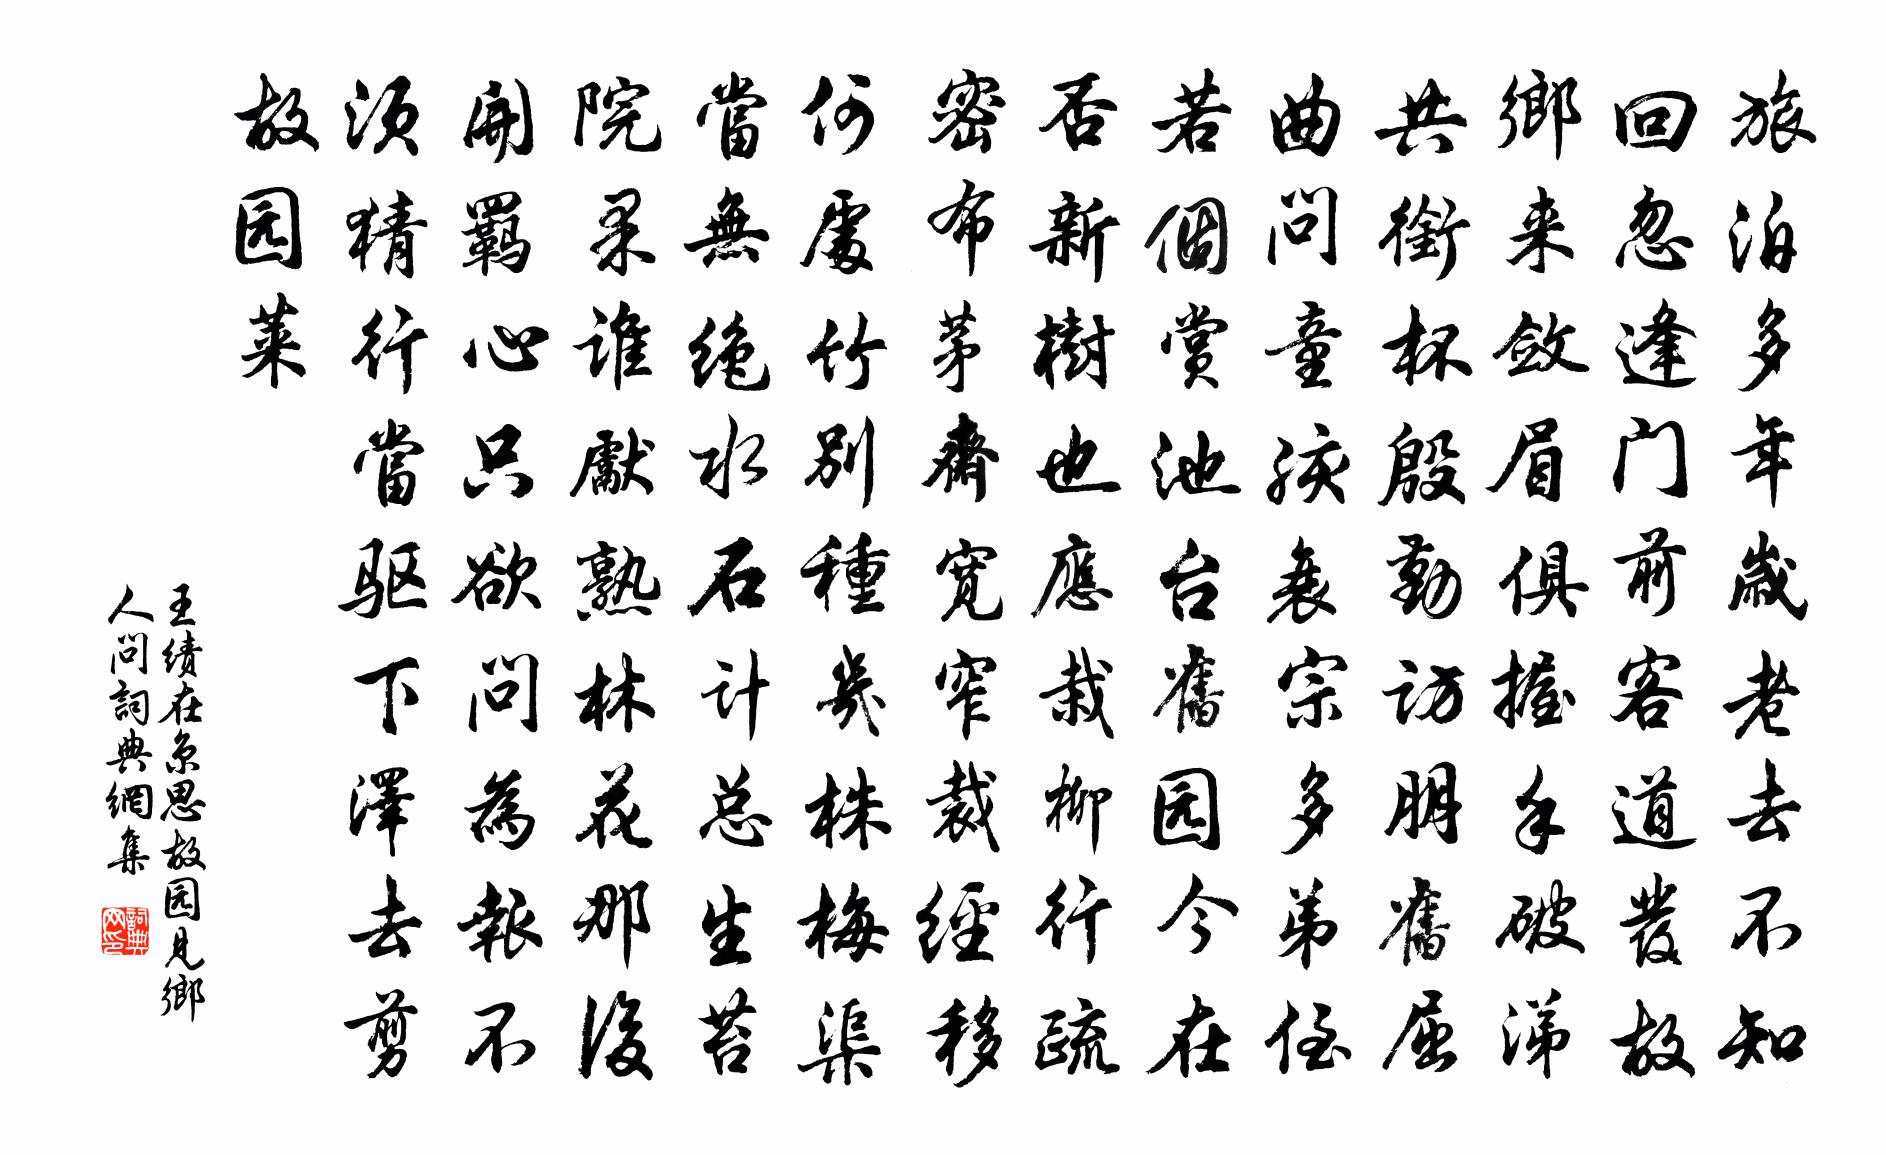 旅泊多年歲老去不知
回忽逢门前客道發故
鄉来敛眉俱握手破涕
共銜杯殷勤访朋舊屈
曲問童孩衰宗多弟侄
若個賞池台舊园今在
否新樹也應栽柳行疏
密布茅齋寬窄裁經移
何處竹別種幾株梅渠
當無绝水石计总生苔
院果谁獻熟林花那後
開羈心只欲問為報不
须猜行當驱下澤去剪
故园莱
王绩在京思故园見鄉
人問詞典網集
詞典
网印